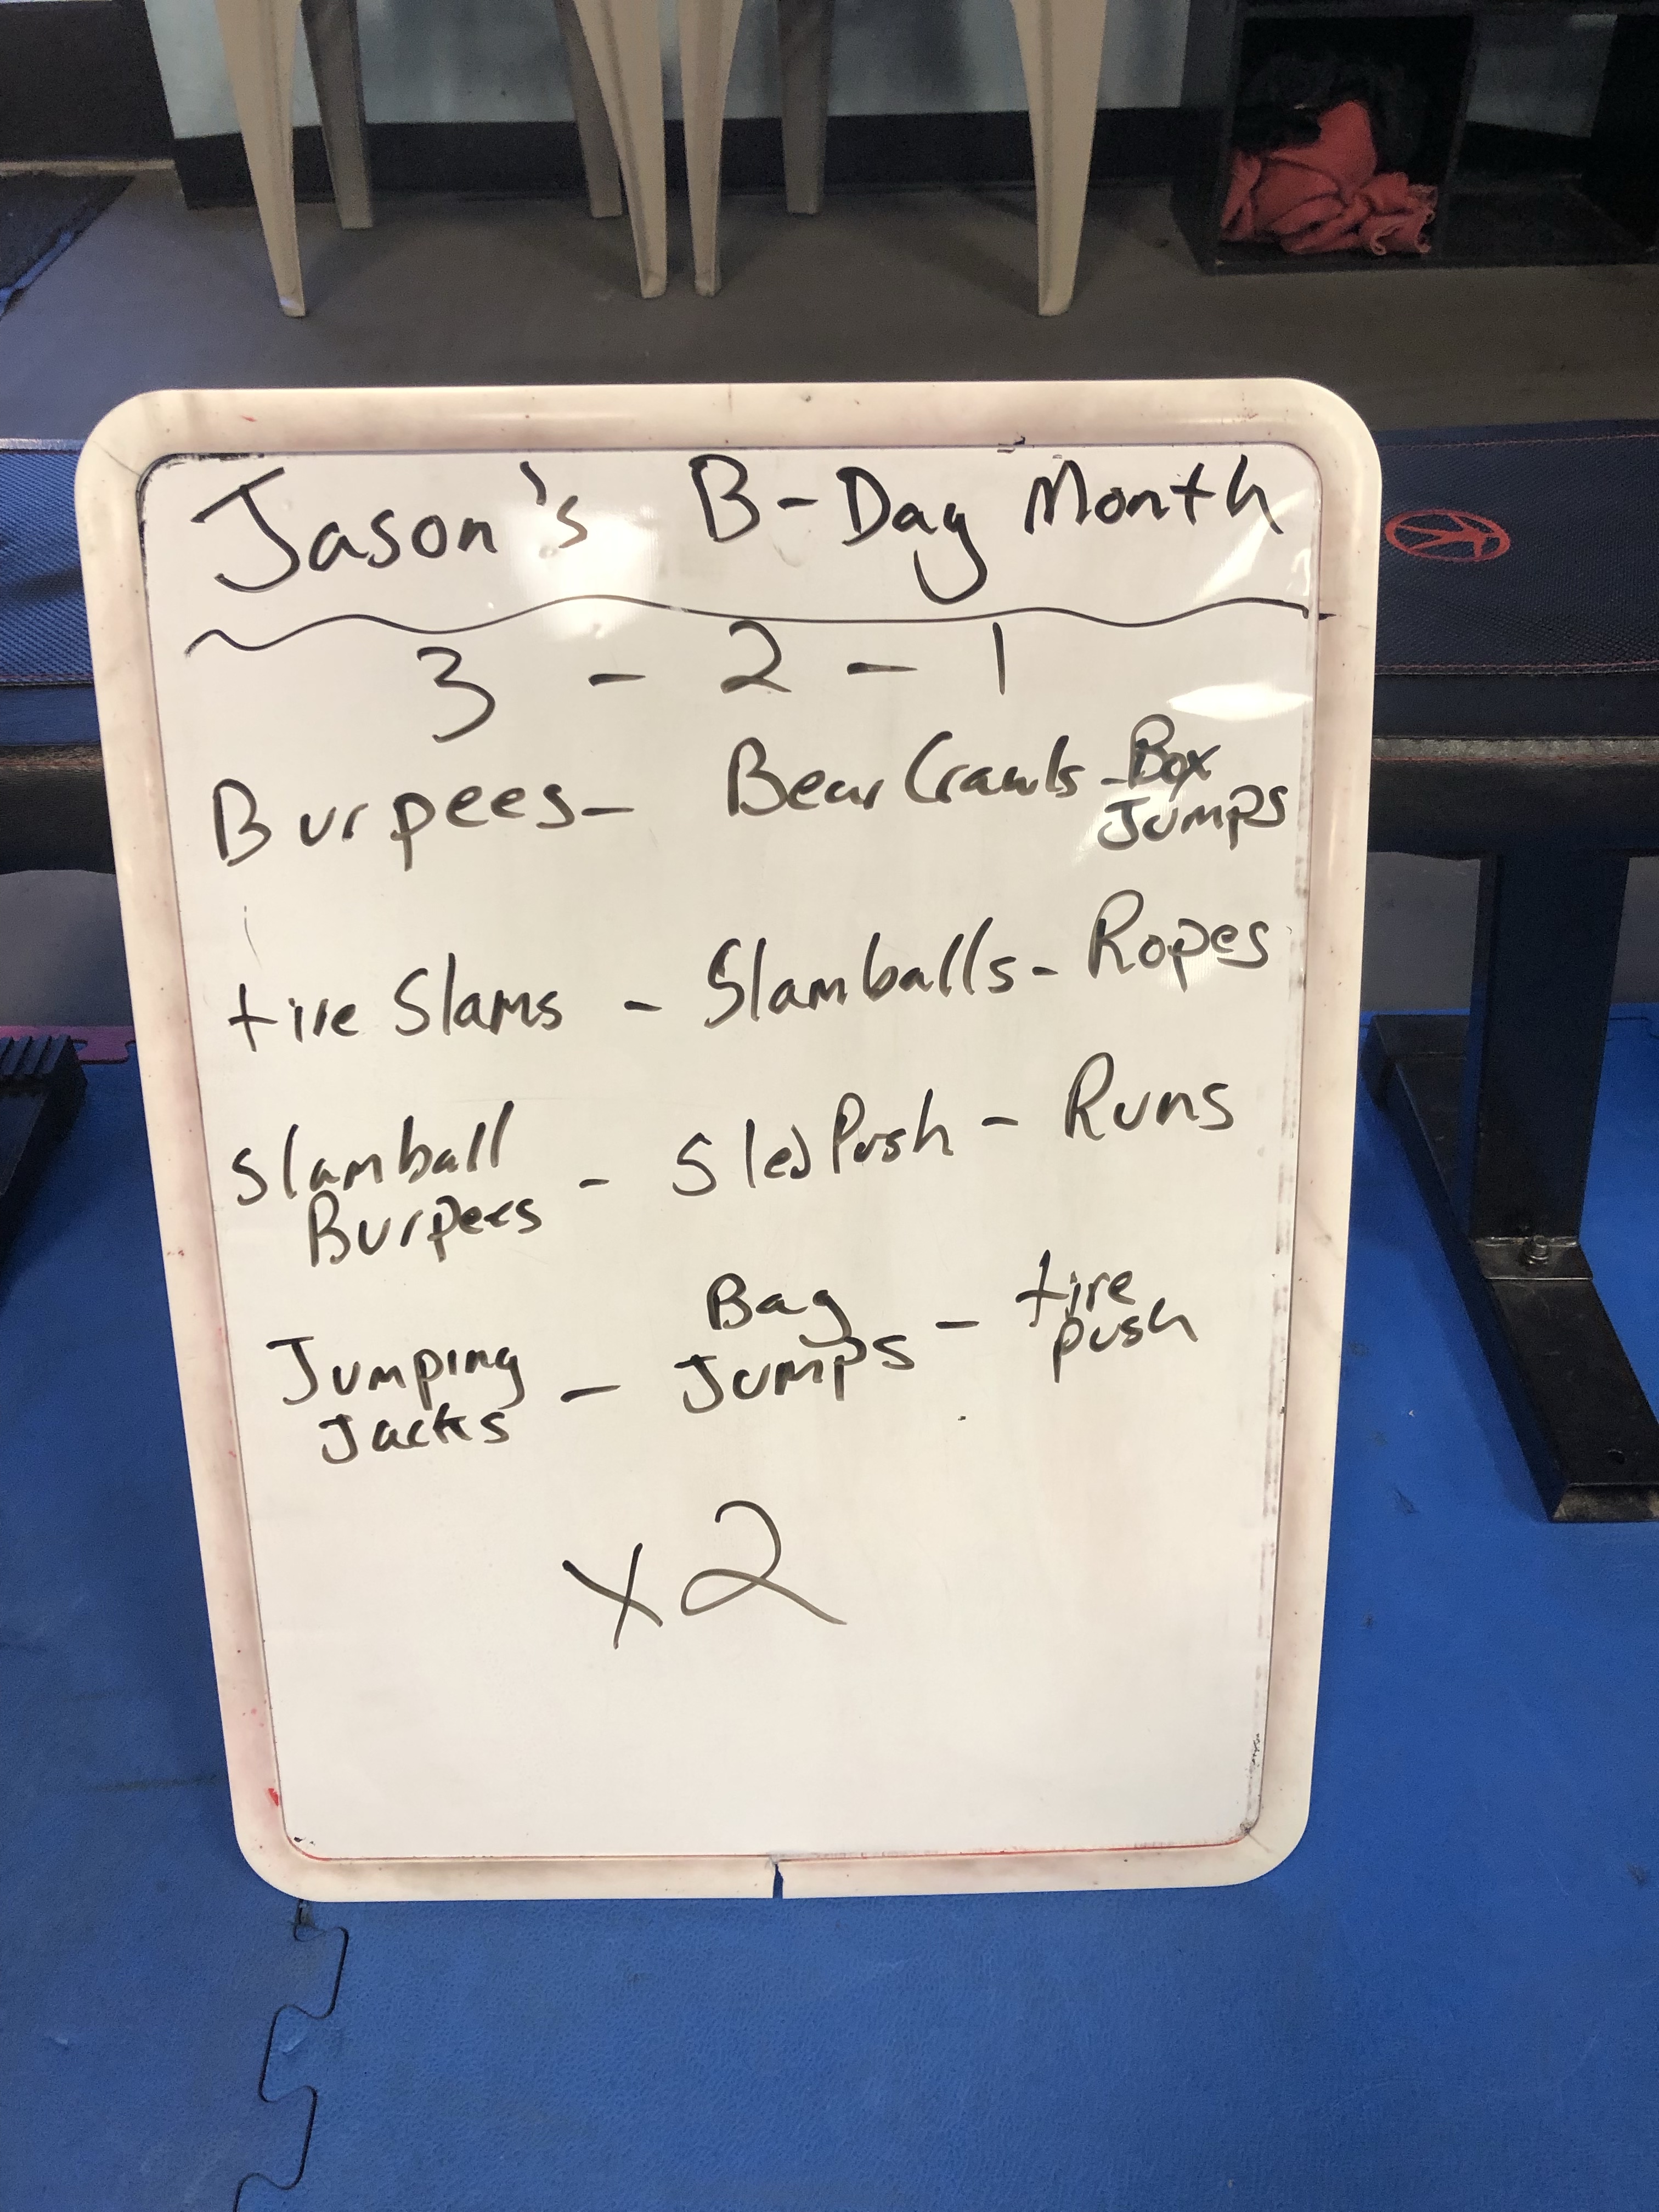 Jason's B-Day Month
3 - 2 - 1
Burpees - Bear Crawls - Box Jumps
tire Slams - Slamballs - Ropes
Slamball Burpees - Sled Push - Runs
Jumping Jacks - Bag Jumps - tire push
x2